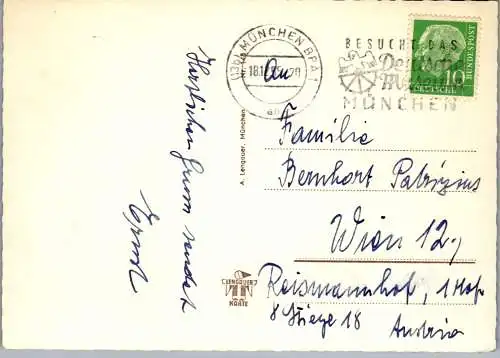 Herzlichen Gruss sendet
Ernst
A. Lengauer, München
LENGAUER
KARTE
MÜNCHEN BPA 1
BESUCHT DAS
Deutsche
Museum
MÜNCHEN
10
DEUTSCHE
BUNDESPOST
An
Familie
Bernhort Patrizius
Wien 12,
Reismannhof, 1 Hof
8 Stiege 18
Austria